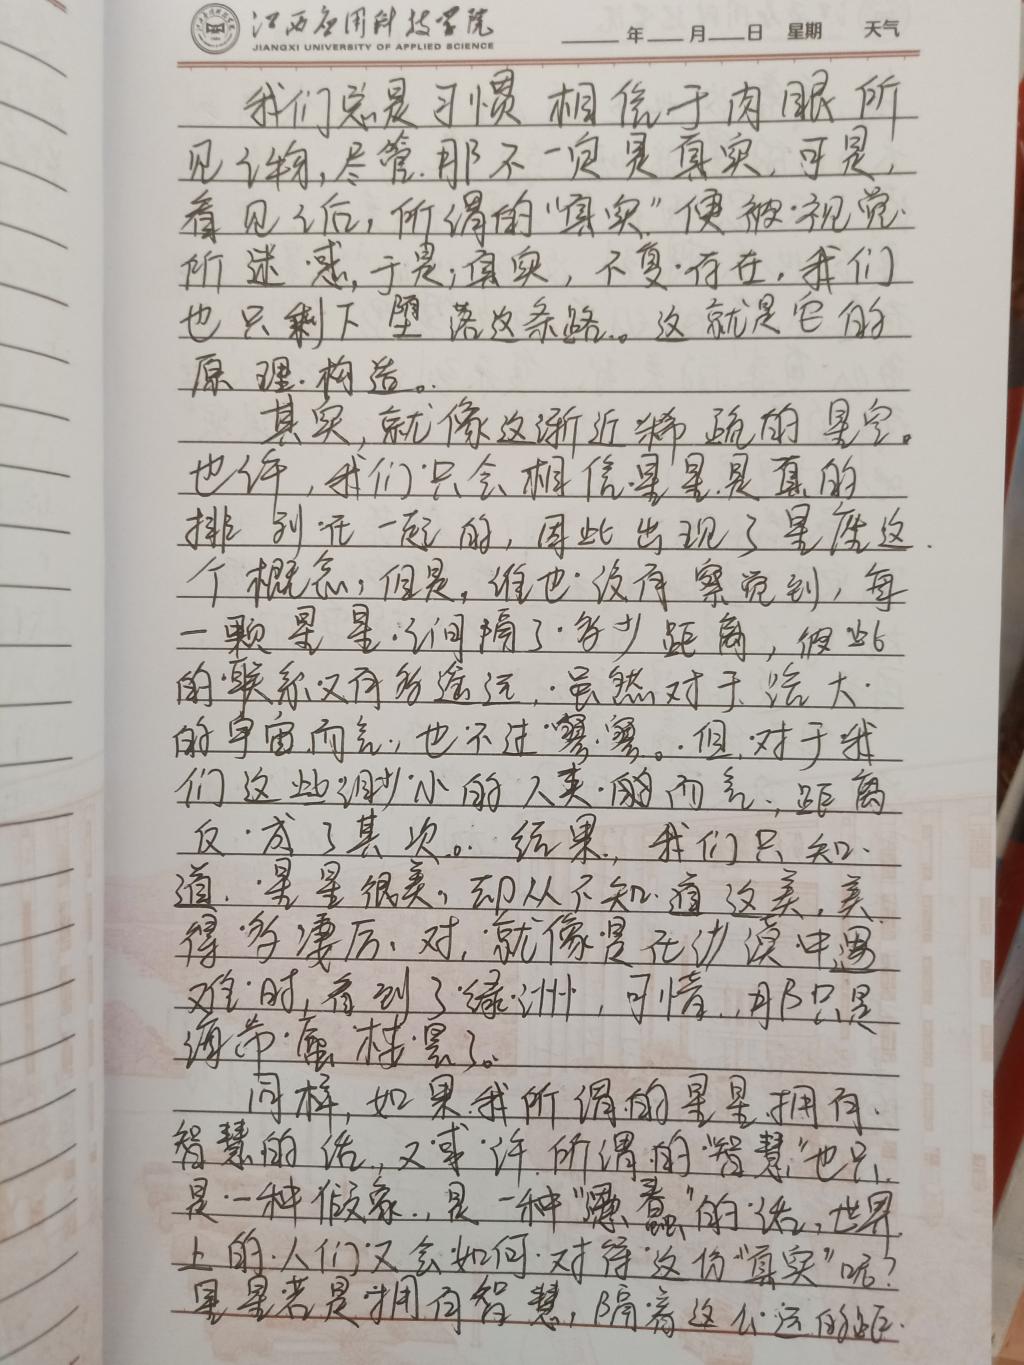 江西应用科技学院
JIANGXI UNIVERSITY OF APPLIED SCIENCE
年 月 日 星期 天气
我们总是习惯相信于肉眼所
见之物,尽管.那不一定是真实,可是,
看见之后,所谓的“真实”便被视觉
所迷惑,于是,真实,不复存在,我们
也只剩下堕落这条路。这就是它的
原理.构造。
其实,就像这渐近稀疏的星空。
也许,我们只会相信星星是真的
排列在一起的,因此出现了星座这
个概念,但是,谁也没有察觉到,每
一颗星星之间隔了多少距离,彼此
的联系又有多遥远,虽然对于浩大
的宇宙而言,也不过寥寥。但对于我
们这些渺小的人类而言,距离
反成了其次。结果,我们只知
道,星星很美,却从不知道这美,美
得多凄厉,对,就像是在沙漠中遇
难时,看到了绿洲,可惜,那只是
海市蜃楼罢了。
同样,如果我所谓的星星拥有
智慧的话,又或许所谓的“智慧”也只
是一种假象,是一种“愚蠢”的话,世界
上的人们又会如何对待这份“真实”呢?
星星若是拥有智慧,隔着这么远的距